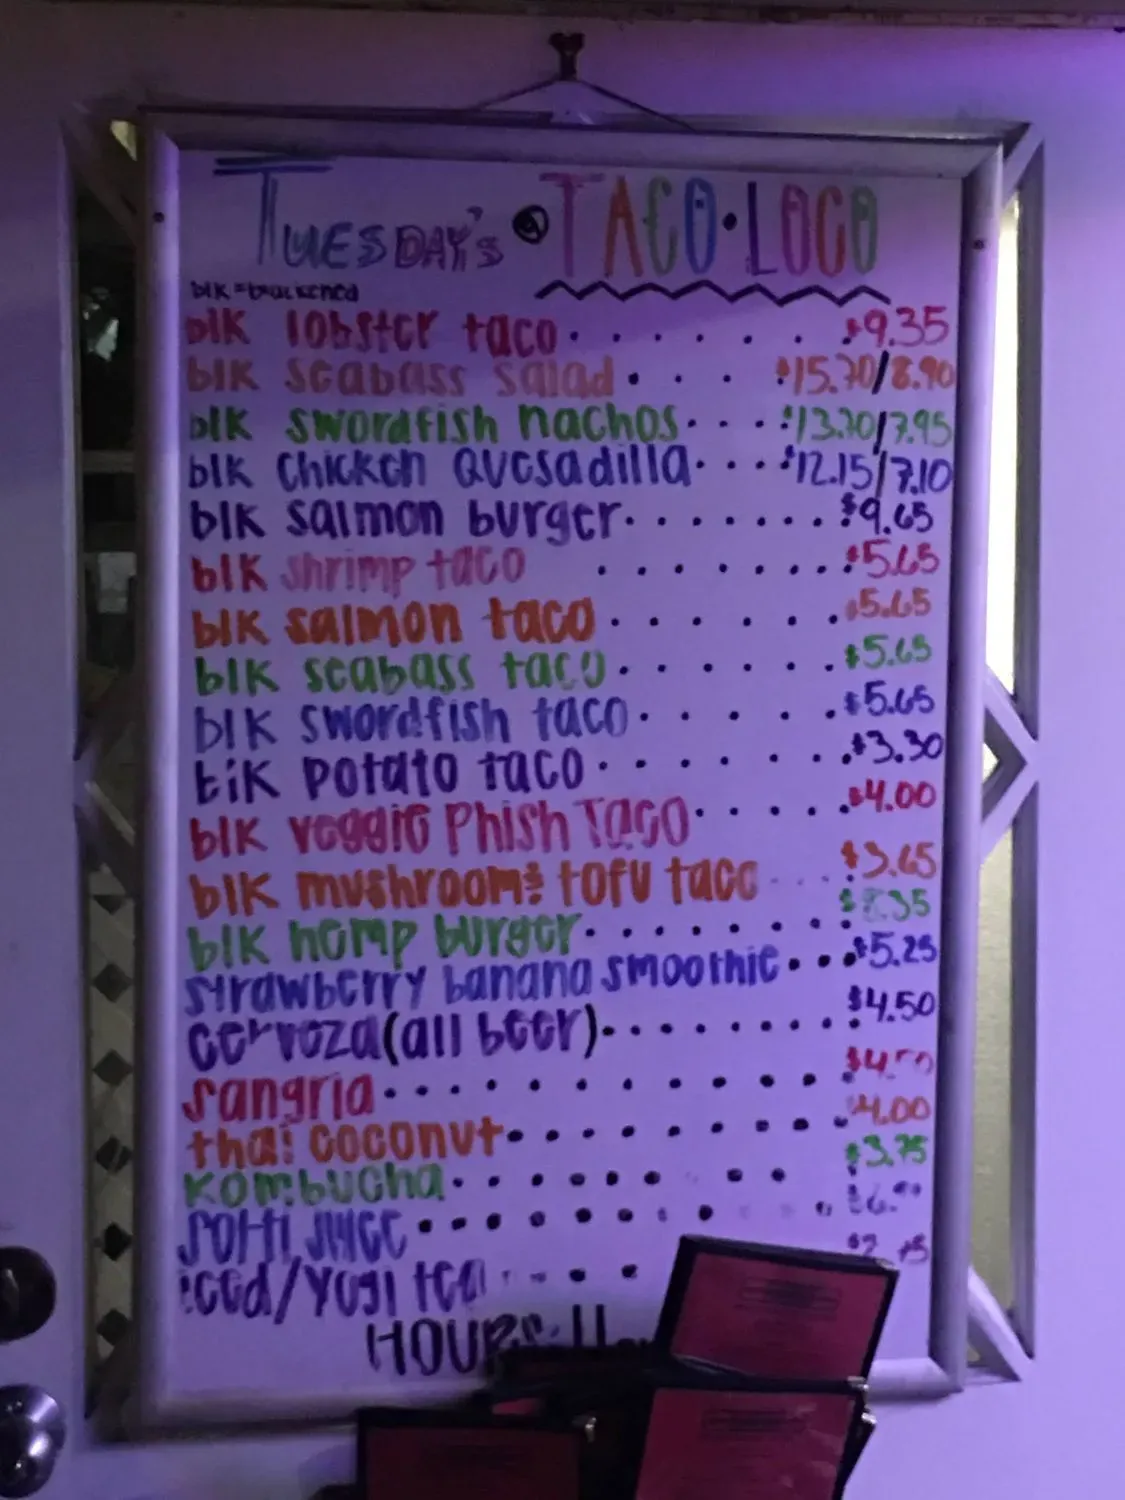 TUESDAY'S @ TACO•LOCO
blk = blackened
blk lobster taco . . . . . . . $9.35
blk seabass salad . . . . $15.70/8.90
blk swordfish nachos . . . . $13.70/7.95
blk chicken quesadilla . . . . $12.15/7.10
blk salmon burger . . . . . . . $9.65
blk shrimp taco . . . . . . . . $5.65
blk salmon taco . . . . . . $5.65
blk seabass taco . . . . . . $5.65
blk swordfish taco . . . . . $5.65
blk potato taco . . . . . . . $3.30
blk veggie phish taco . . . . . $4.00
blk mushroom & tofu taco . . . . $3.65
blk hemp burger . . . . . . . .
strawberry banana smoothie . . . $5.25
cerveza (all beer) . . . . . . . . . $4.50
sangria . . . . . . . . . . $4.50
thai coconut . . . . . . . . . $4.00
kombucha . . . . . . . . $3.75
juice . . . . . . . . . .
iced/yogi tea . . . .
HOURS: